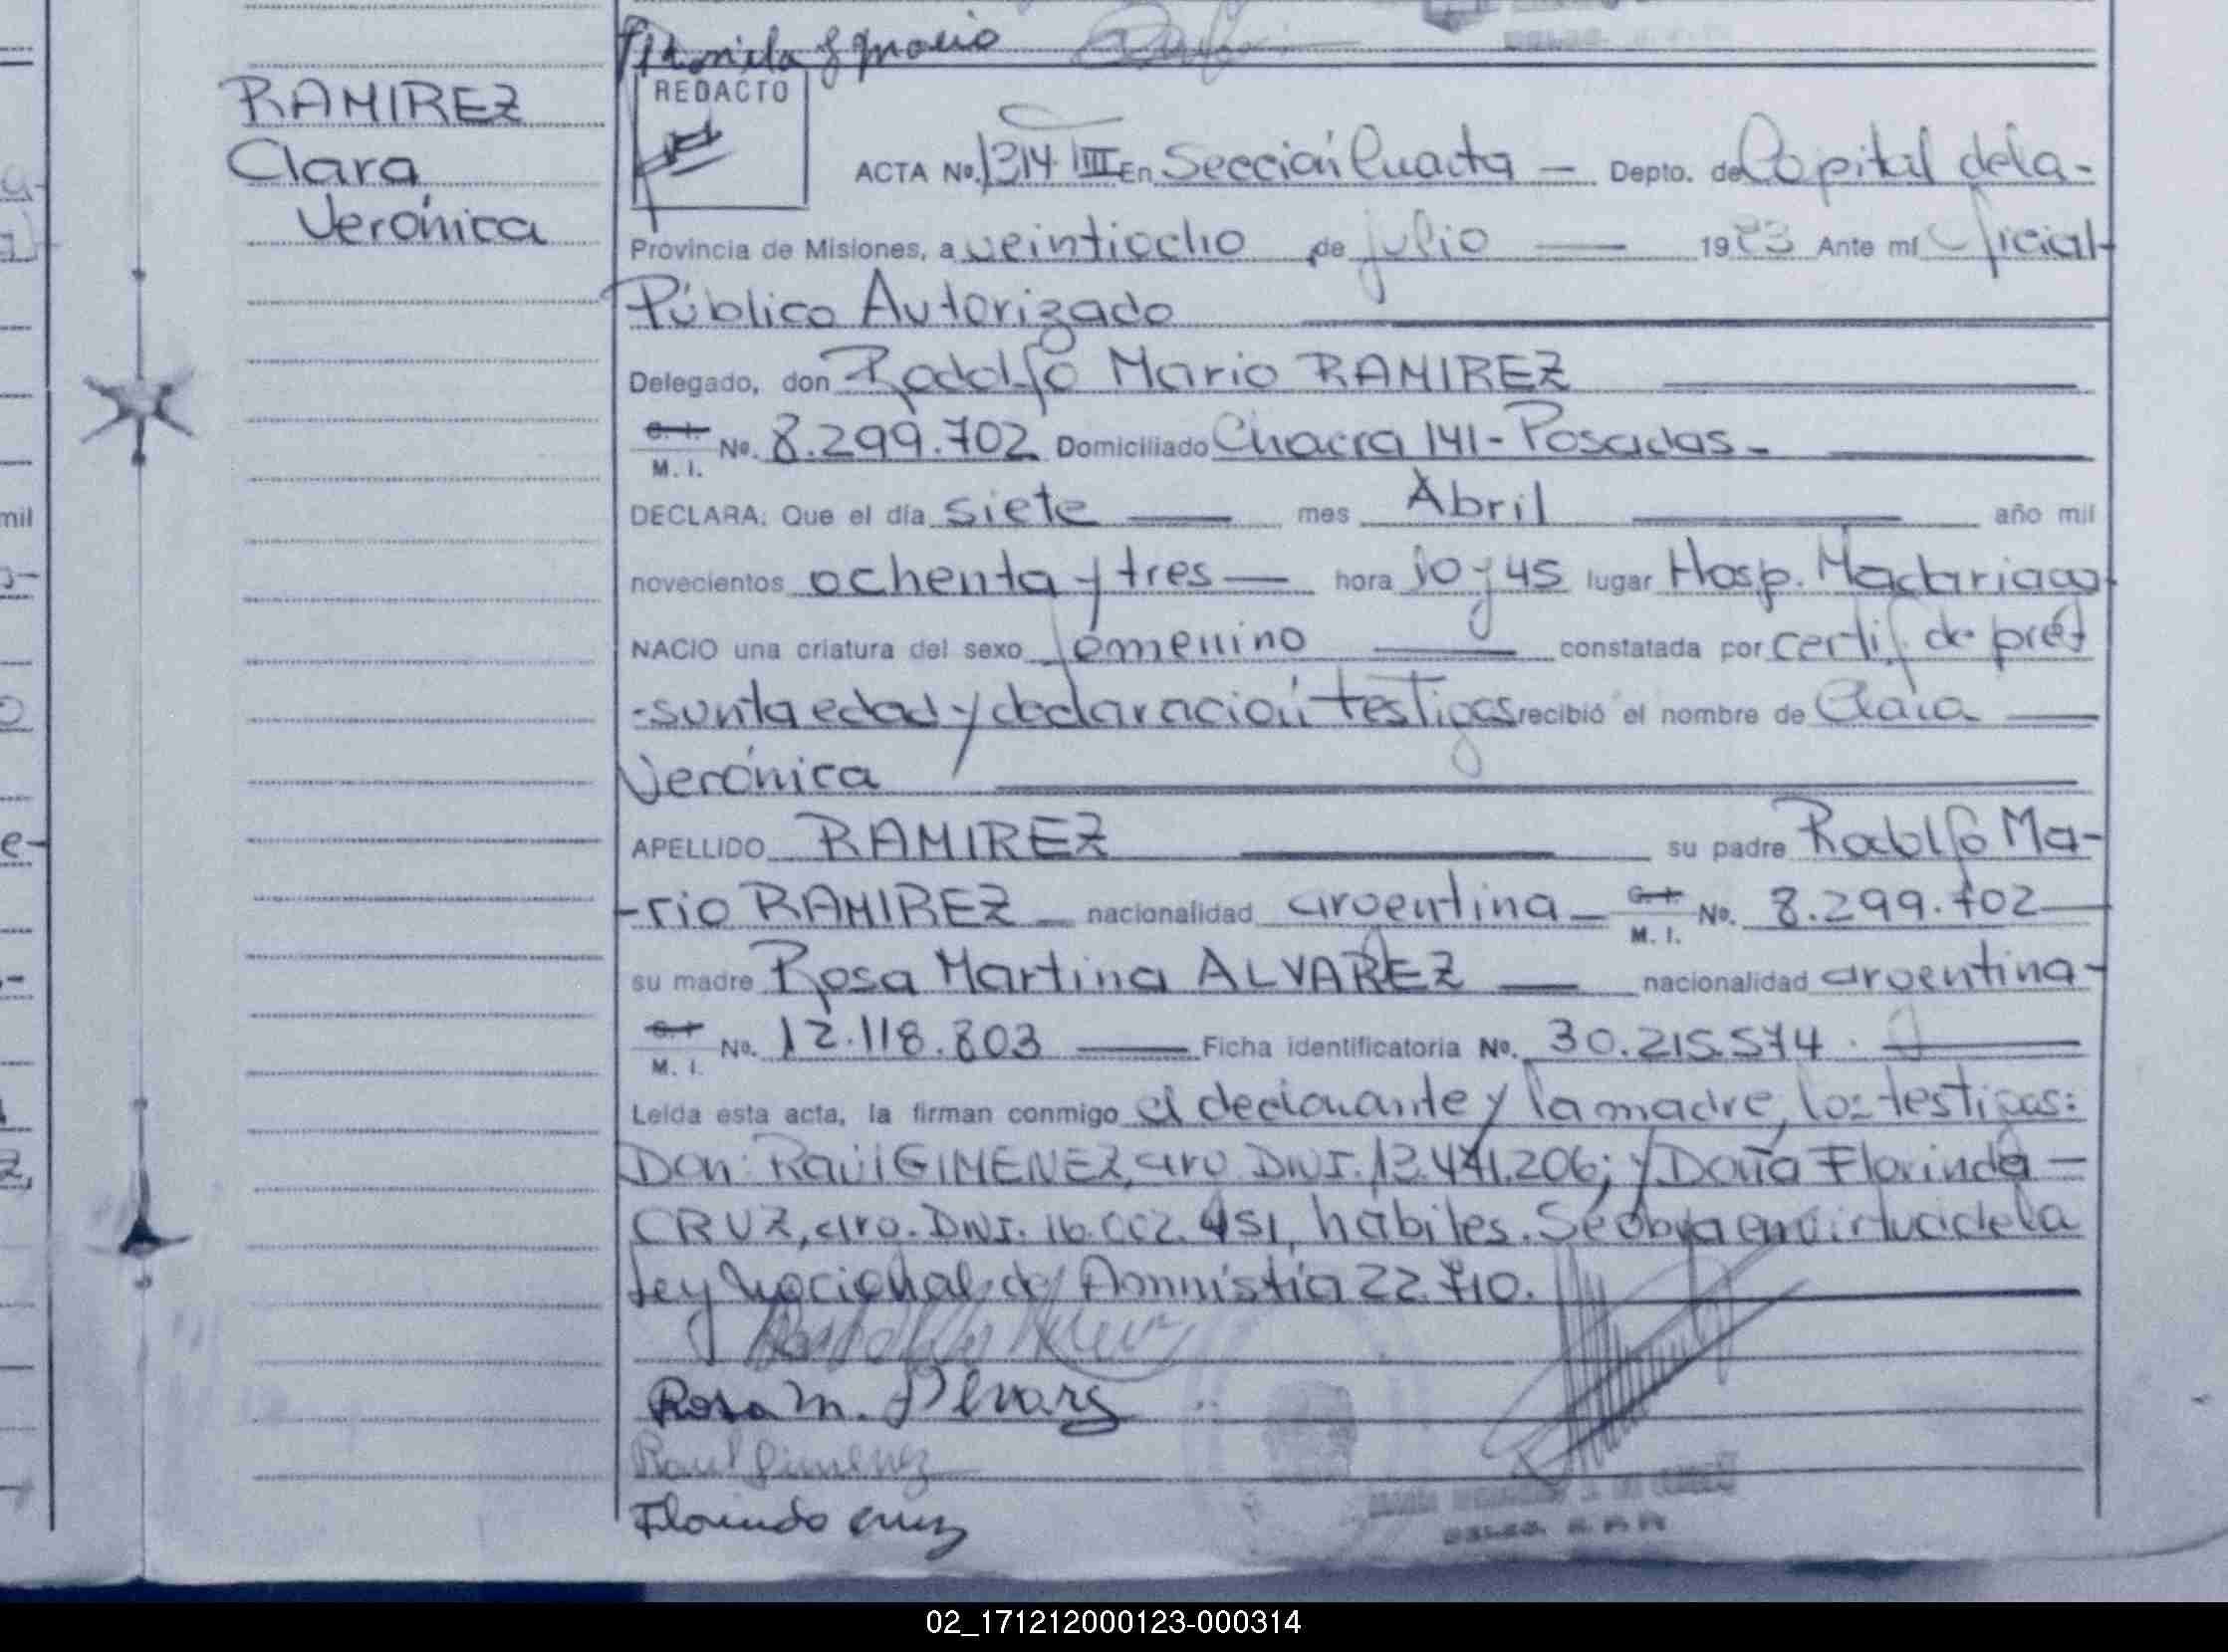 RAMIREZ
Clara
Verónica
REDACTO
ACTA No. 1314 III En Sección Cuarta — Depto. de Capital de la-
Provincia de Misiones, a veintiocho de julio — 1983 Ante mí Oficial-
Público Autorizado
Delegado, don Rodolfo Mario RAMIREZ
C. I.
M. I. No. 8.299.702 Domiciliado Chacra 141-Posadas-
DECLARA: Que el día siete — mes Abril — año mil
novecientos ochenta y tres — hora 10 y 45 lugar Hosp. Madariaga
NACIO una criatura del sexo femenino — constatada por certif. de pre-
-sunta edad y declaración testigos recibió el nombre de Clara —
Verónica
APELLIDO RAMIREZ — su padre Rodolfo Ma-
-rio RAMIREZ — nacionalidad argentina — C. I.
M. I. No. 8.299.702
su madre Rosa Martina ALVAREZ — nacionalidad argentina-
C. I.
M. I. No. 12.118.803 — Ficha identificatoria No. 30.215.574.
Leída esta acta, la firman conmigo el declarante y la madre, los testigos:
Don: Raúl GIMENEZ, arg. DNI. 13.471.206; y Doña Florinda —
CRUZ, arg. DNI. 16.002.451, hábiles. Se obra en virtud de la
Ley Nacional de Amnistía 22.710.
Rosa M. Alvarez
Raul Gimenez
Florinda Cruz
02_171212000123-000314